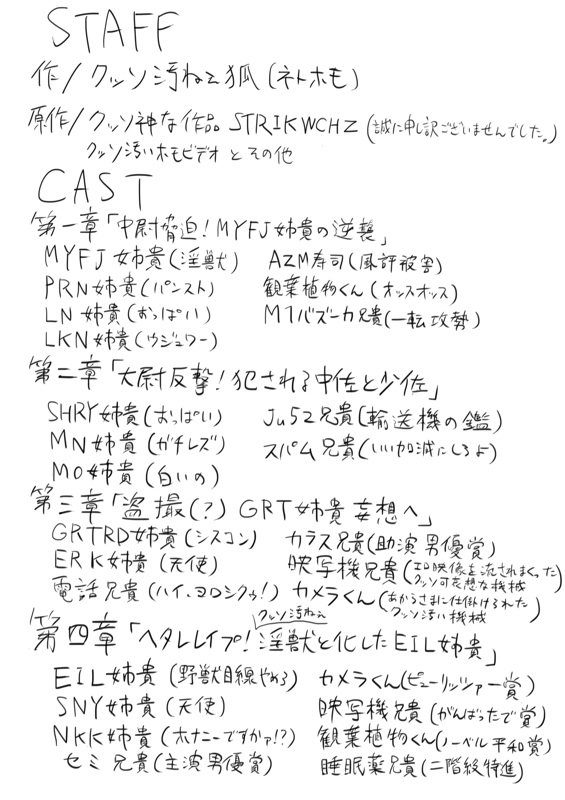 STAFF
作/クッソ汚ねえ狐(ネトホモ)
原作/クッソ神な作品 STRIKWCHZ(誠に申し訳ございませんでした。)
クッソ汚いホモビデオとその他
CAST
第一章「中尉脅迫!MYFJ姉貴の逆襲」
MYFJ姉貴(淫獣) AZM寿司(風評被害)
PRN姉貴(パンスト) 観葉植物くん(オッスオッス)
LN姉貴(おっぱい) M1バズーカ兄貴(一転攻勢)
LKN姉貴(ウジュワー)
第二章「大尉反撃!犯される中佐と少佐」
SHRY姉貴(おっぱい) Ju52兄貴(輸送機の鑑)
MN姉貴(ガチレズ) スパム兄貴(いい加減にしろよ)
MO姉貴(白いの)
第三章「盗撮(?)GRT姉貴妄想へ」
GRTRD姉貴(シスコン) カラス兄貴(助演男優賞)
ERK姉貴(天使) 映写機兄貴(エロ映像を流されまくったクッソ可哀想な機械)
電話兄貴(ハイ、ヨロシクゥ!) カメラくん(あからさまに仕掛けられたクッソ汚い機械)
クッソ汚ねえ
第四章「ヘタレレイプ!淫獣と化したEIL姉貴」
EIL姉貴(野獣目線やめろ) カメラくん(ピューリッツァー賞)
SNY姉貴(天使) 映写機兄貴(がんばったで賞)
NKK姉貴(オナニーですかァ!?) 観葉植物くん(ノーベル平和賞)
セミ兄貴(主演男優賞) 睡眠薬兄貴(二階級特進)